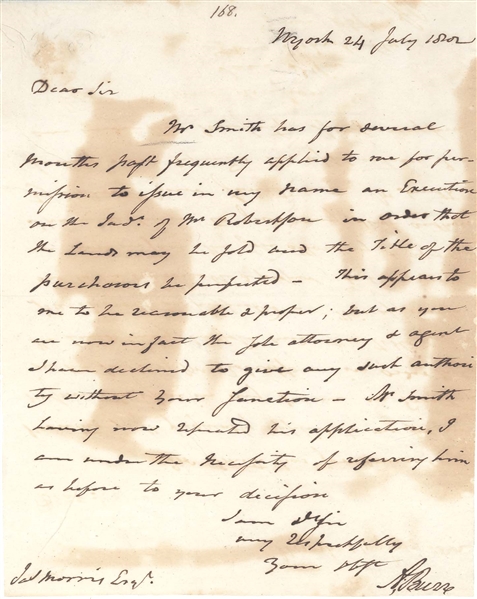 168.
NYork 24 July 1802
Dear Sir
Mr Smith has for several
Months past frequently applied to me for per-
mission to issue in my name an Execution
on the Judt. of Mr Robertson in order that
the Lands may be sold and the Title of the
purchasers be perfected – This appears to
me to be reasonable & proper; but as you
are now in fact the sole attorney & agent
I have declined to give any such authori
ty without your Sanction – Mr Smith
having now repeated his application, I
am under the Necessity of referring him
as before to your decision
I am D Sir
very respectfully
Your Obt
A. Burr
Jas Morris Esqr.